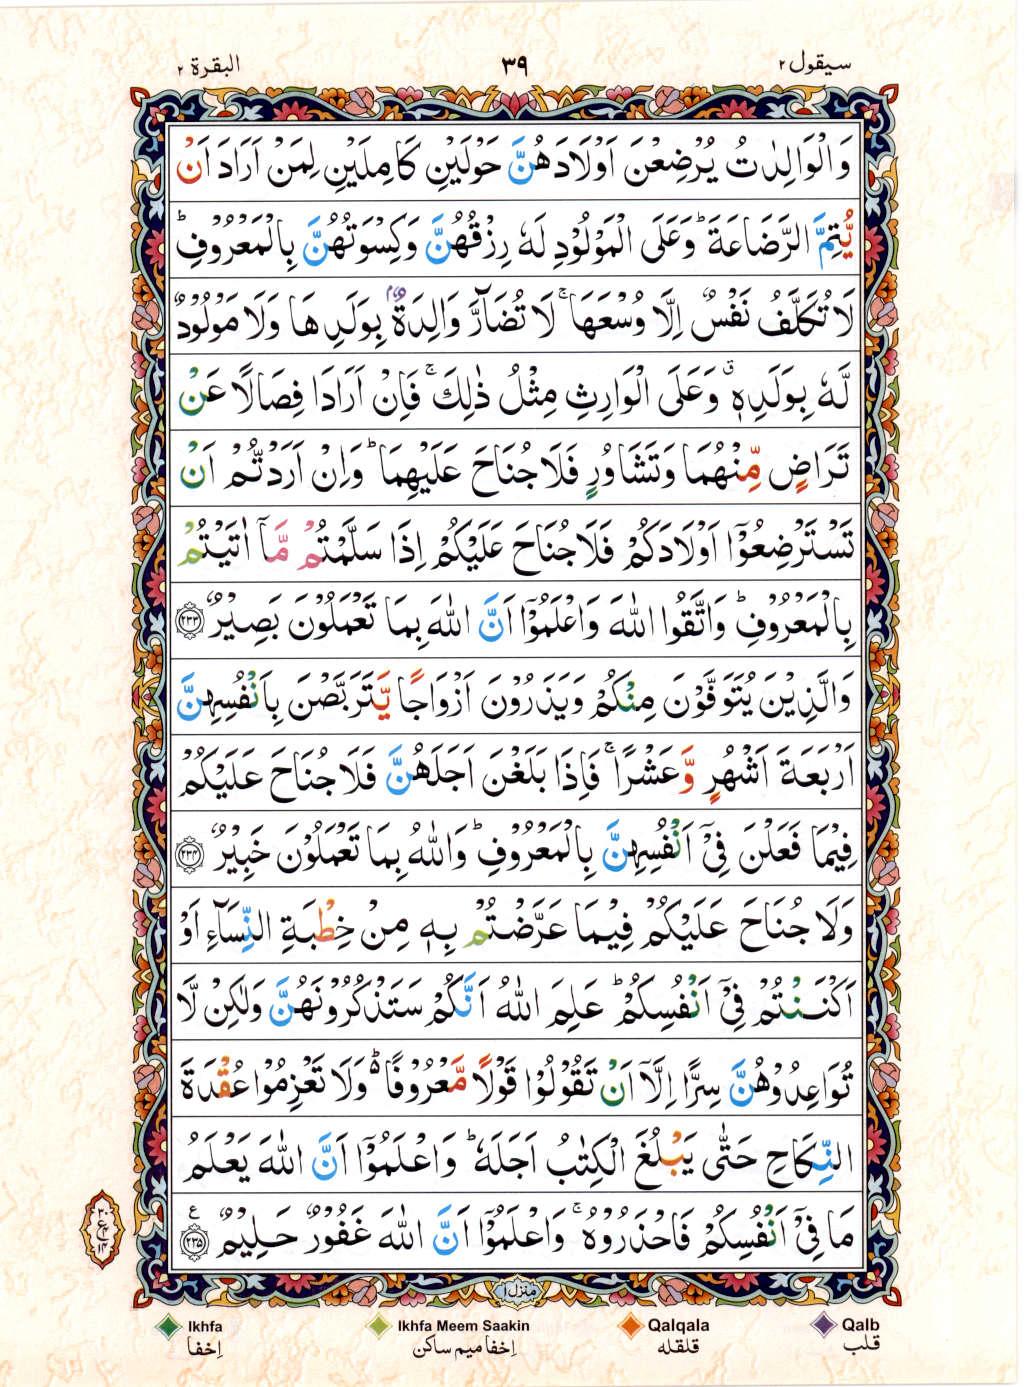 سيقول ٢
٣٩
البقرة ٢
وَالْوَالِدٰتُ يُرْضِعْنَ اَوْلَادَهُنَّ حَوْلَيْنِ كَامِلَيْنِ لِمَنْ اَرَادَ اَنْ
يُّتِمَّ الرَّضَاعَةَ ؕ وَعَلَى الْمَوْلُوْدِ لَهٗ رِزْقُهُنَّ وَكِسْوَتُهُنَّ بِالْمَعْرُوْفِ ؕ
لَا تُكَلَّفُ نَفْسٌ اِلَّا وُسْعَهَا ۚ لَا تُضَآرَّ وَالِدَةٌۢ بِوَلَدِهَا وَلَا مَوْلُوْدٌ
لَّهٗ بِوَلَدِهٖ ۗ وَعَلَى الْوَارِثِ مِثْلُ ذٰلِكَ ۚ فَاِنْ اَرَادَا فِصَالًا عَنْ
تَرَاضٍ مِّنْهُمَا وَتَشَاوُرٍ فَلَا جُنَاحَ عَلَيْهِمَا ؕ وَاِنْ اَرَدْتُّمْ اَنْ
تَسْتَرْضِعُوْۤا اَوْلَادَكُمْ فَلَا جُنَاحَ عَلَيْكُمْ اِذَا سَلَّمْتُمْ مَّاۤ اٰتَيْتُمْ
بِالْمَعْرُوْفِ ؕ وَاتَّقُوا اللّٰهَ وَاعْلَمُوْۤا اَنَّ اللّٰهَ بِمَا تَعْمَلُوْنَ بَصِيْرٌ ۝٢٣٣
وَالَّذِيْنَ يُتَوَفَّوْنَ مِنْكُمْ وَيَذَرُوْنَ اَزْوَاجًا يَّتَرَبَّصْنَ بِاَنْفُسِهِنَّ
اَرْبَعَةَ اَشْهُرٍ وَّعَشْرًا ۚ فَاِذَا بَلَغْنَ اَجَلَهُنَّ فَلَا جُنَاحَ عَلَيْكُمْ
فِيْمَا فَعَلْنَ فِىْۤ اَنْفُسِهِنَّ بِالْمَعْرُوْفِ ؕ وَاللّٰهُ بِمَا تَعْمَلُوْنَ خَبِيْرٌ ۝٢٣٤
وَلَا جُنَاحَ عَلَيْكُمْ فِيْمَا عَرَّضْتُمْ بِهٖ مِنْ خِطْبَةِ النِّسَآءِ اَوْ
اَكْنَنْتُمْ فِىْۤ اَنْفُسِكُمْ ؕ عَلِمَ اللّٰهُ اَنَّكُمْ سَتَذْكُرُوْنَهُنَّ وَلٰكِنْ لَّا
تُوَاعِدُوْهُنَّ سِرًّا اِلَّاۤ اَنْ تَقُوْلُوْا قَوْلًا مَّعْرُوْفًا ؕ وَلَا تَعْزِمُوْا عُقْدَةَ
النِّكَاحِ حَتّٰى يَبْلُغَ الْكِتٰبُ اَجَلَهٗ ؕ وَاعْلَمُوْۤا اَنَّ اللّٰهَ يَعْلَمُ
مَا فِىْۤ اَنْفُسِكُمْ فَاحْذَرُوْهُ ۚ وَاعْلَمُوْۤا اَنَّ اللّٰهَ غَفُوْرٌ حَلِيْمٌ ۝٢٣٥ ع
٣٠
ع
١٤
منزل ١
Ikhfa
Ikhfa Meem Saakin
Qalqala
Qalb
اِخفا
اِخفا میم ساکن
قلقله
قلب